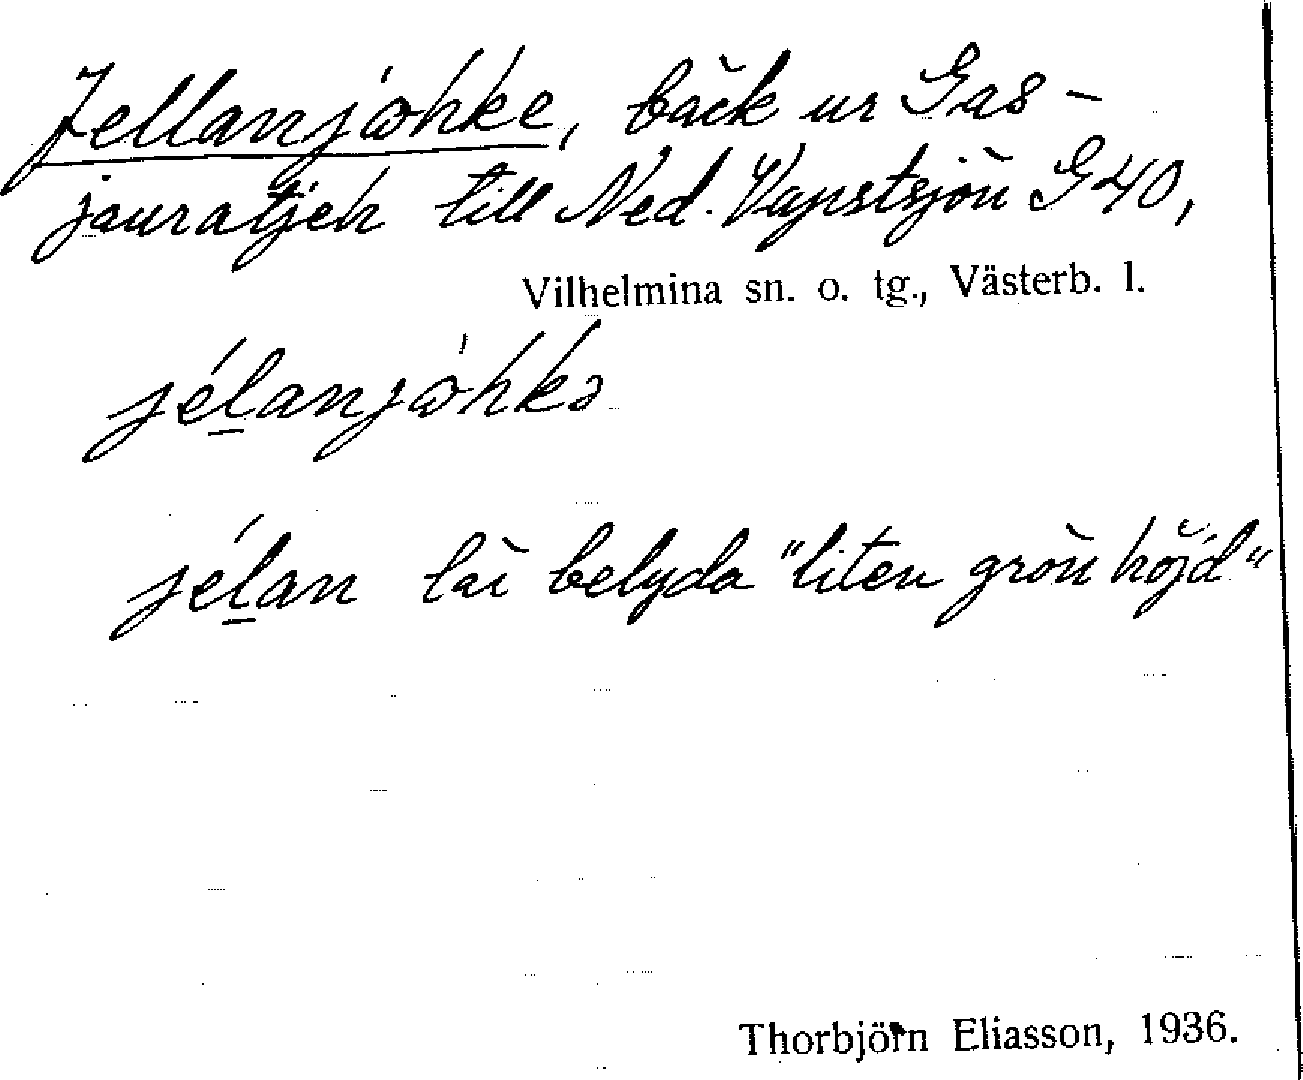 Jellanjåhke, bäck ur Gas-
jauratjeh till Ned. Vapstsjön G40,
Vilhelmina sn. o. tg., Västerb. l.
jél̲anjåhkə
jél̲an lär belyda "liten grön höjd"
Thorbjörn Eliasson, 1936.